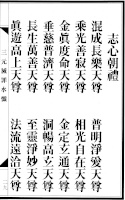 志心朝禮
混成長樂天尊　普明淨愛天尊
乘光善寂天尊　相光自在天尊
金眞度命天尊　金定玄通天尊
垂慈普濟天尊　洞暢高玄天尊
長生萬善天尊　至靈淨妙天尊
眞遊高上天尊　法流遠洽天尊
三元滅罪水懺